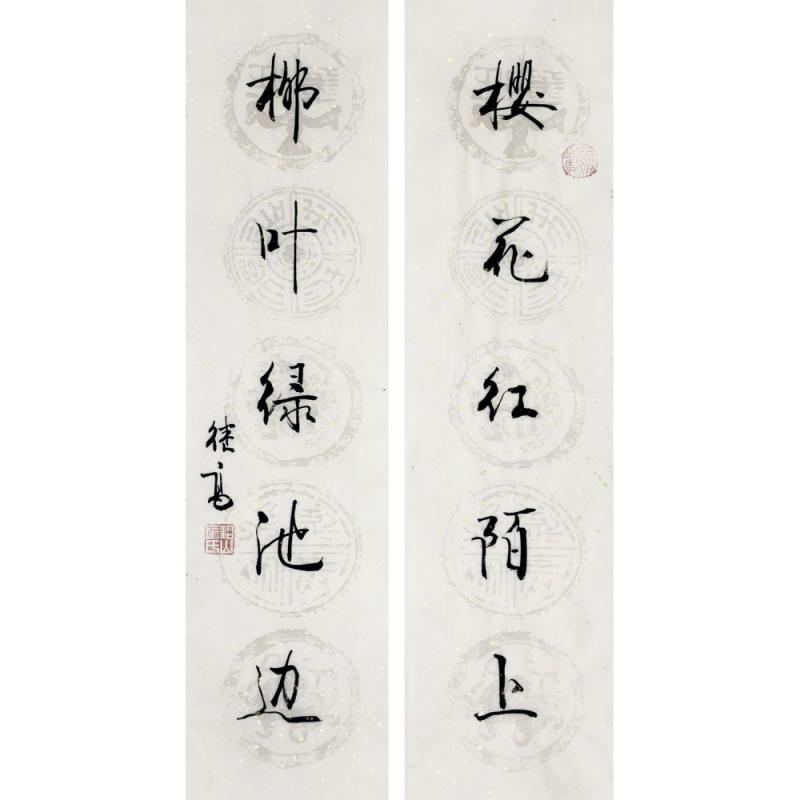 樱花红陌上
柳叶绿池边
继高